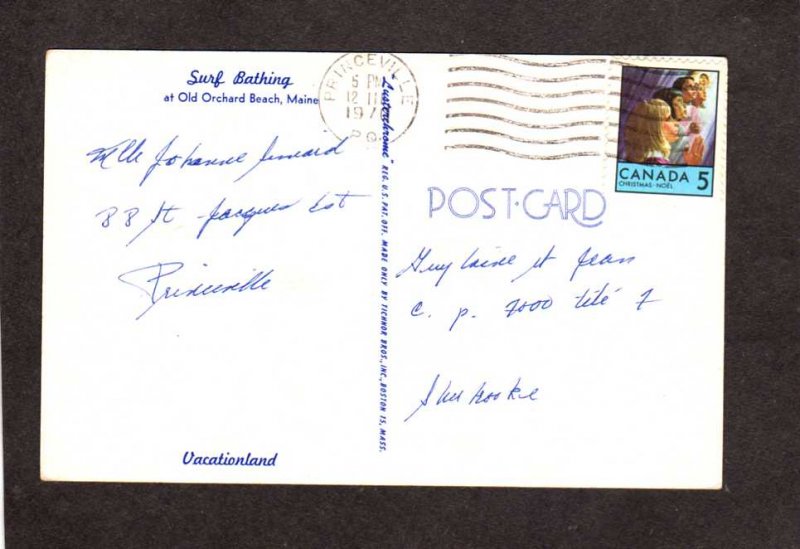 Surf Bathing
at Old Orchard Beach, Maine
Mlle Johanne
88 St Jacques Est
Princeville
Vacationland
"Lusterchrome" REG. U.S. PAT. OFF. MADE ONLY BY TICHNOR BROS., INC., BOSTON 15, MASS.
PRINCEVILLE
5 PM
12 II
197
P Q
CANADA 5
CHRISTMAS·NOËL
POST·CARD
Guylaine St Jean
c. p. 7000 télé 7
Sherbrooke